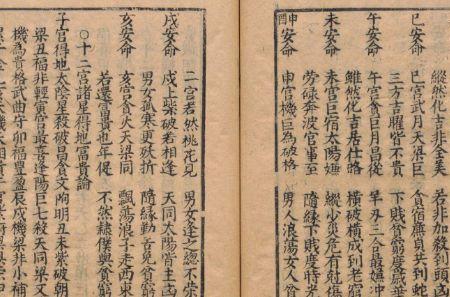 縱然化吉非全美　若非加殺到頭凶
巳安命　巳宮武月天梁巨　貪宿廉貞共到蛇
三方吉曜皆不貴　下賤貧窮度歲華
午安命　午宮貪巨月昌從　羊刃三合最嫌冲
雖然化吉居仕路　橫破橫成到老窮
未安命　未宮巨宿太陽嫌　縱少災危有尅傷
勞碌奔波官事至　隨緣下賤度時光
申安命　申宮機巨為破格　男人浪蕩女人貧
二宮若然桃花見　男女逢之總不榮
戌安命　戌上紫破若相逢　天同太陽皆主凶
男女孤寒更妖折　隨緣勤苦免貧窮
亥安命　亥宮貪火天梁同　飄蕩浪子走西東
若還富貴也年促　不然隸僕與貧窮
○十二宮諸星得地富貴論
子宮得地太陰星殺破昌貪文曲明丑未紫破朝
梁丑福非輕寅宮最喜逢陽巨七殺天同梁又
機為貴格武曲守卯福豐盈辰戌機梁非小補